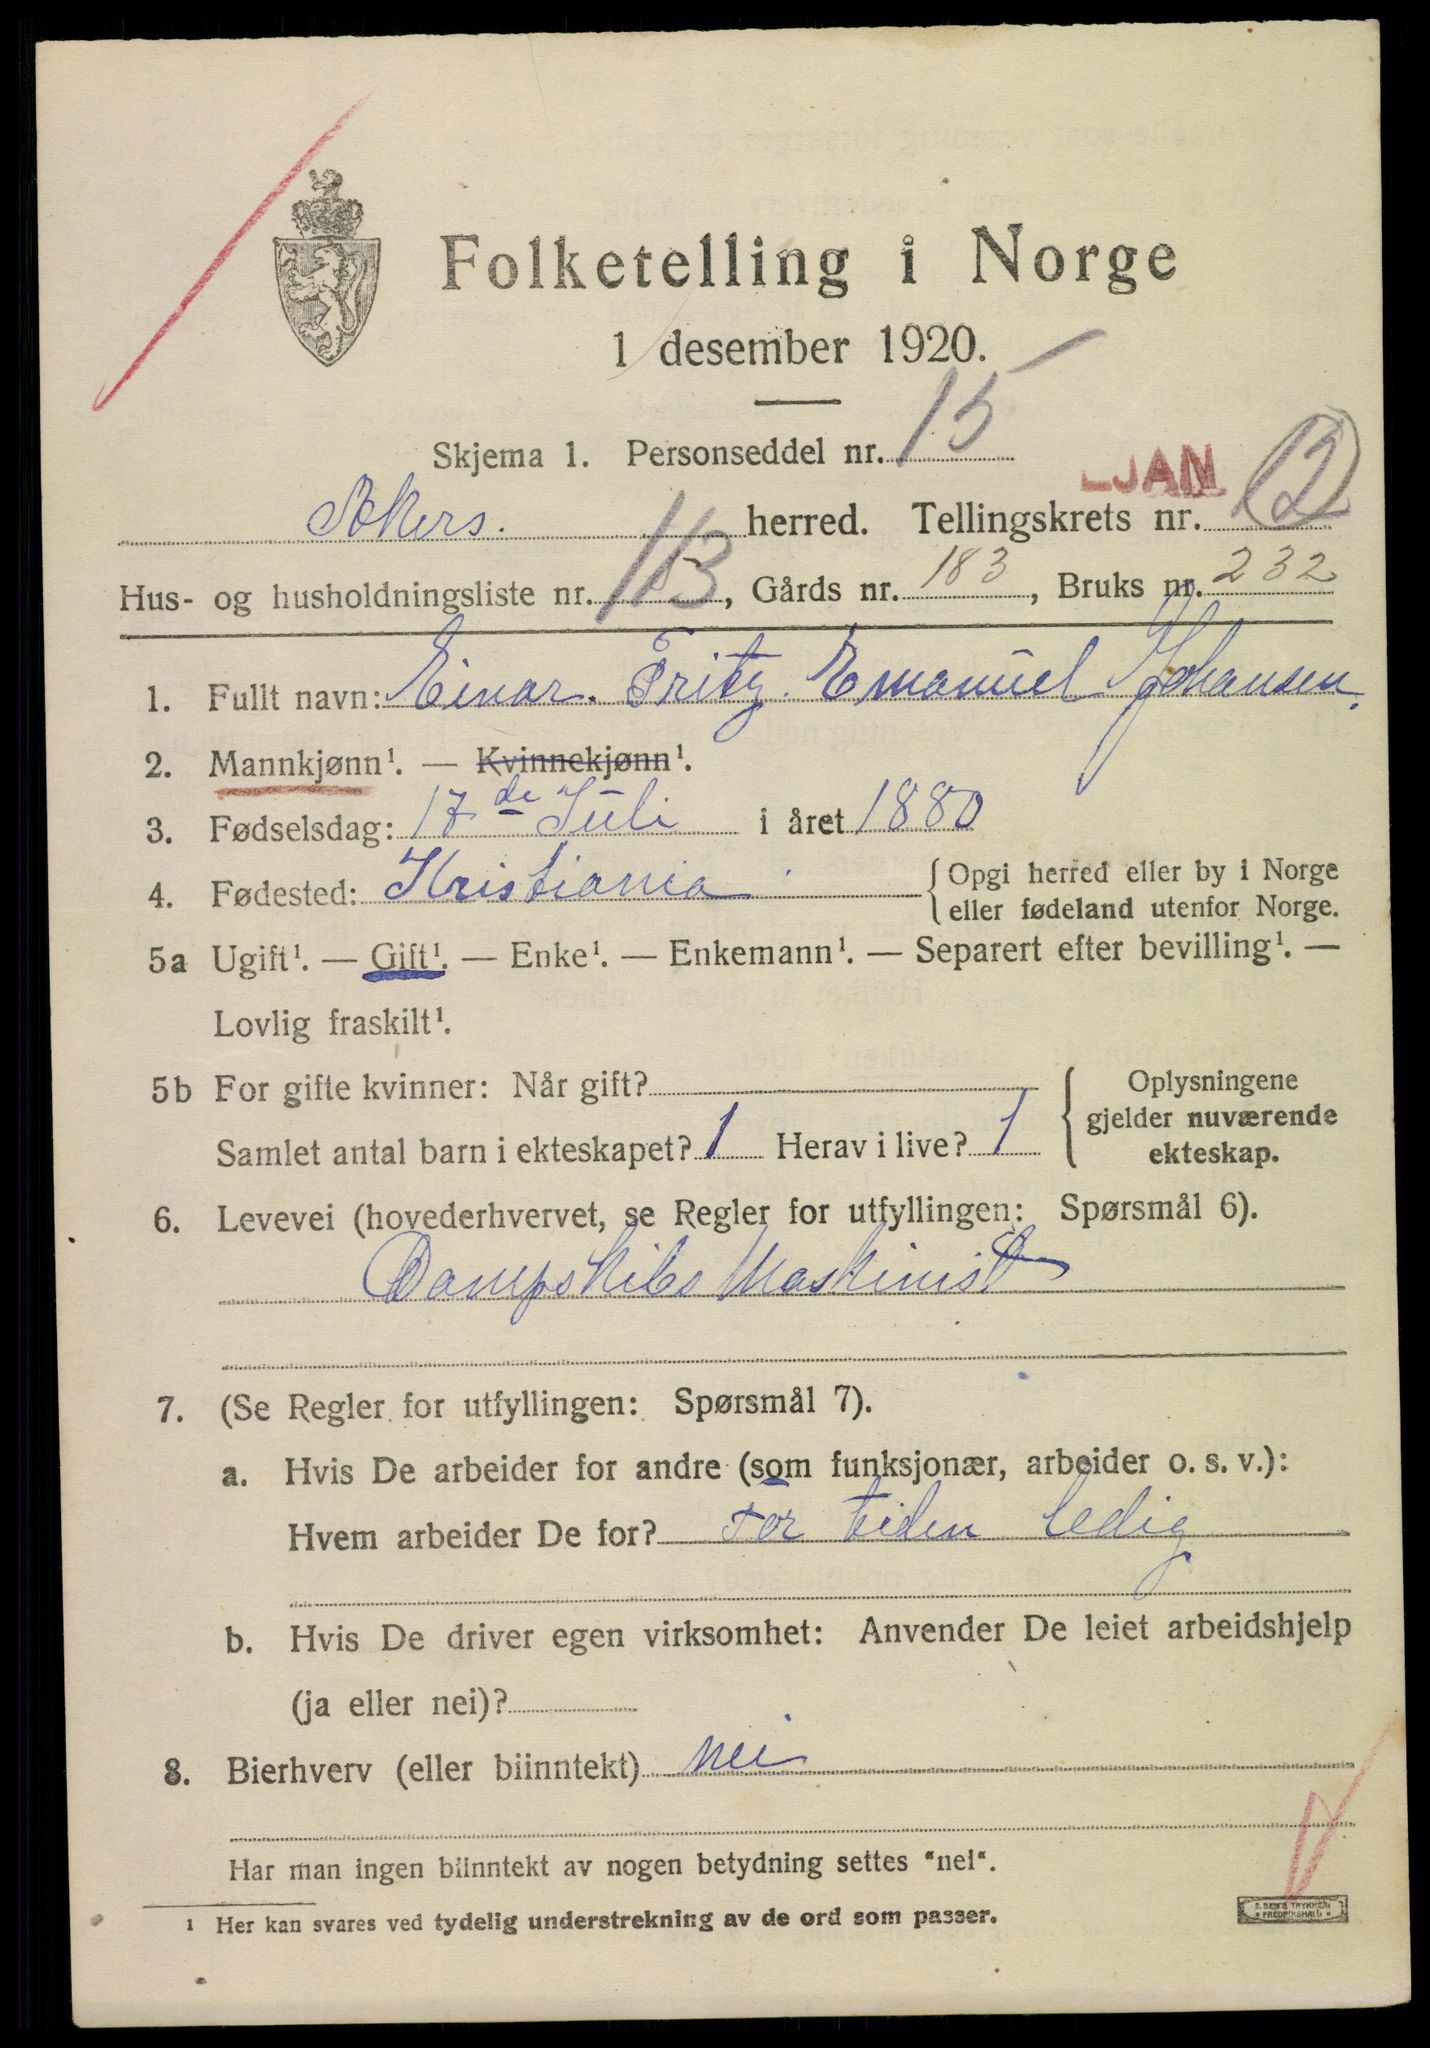 Folketelling i Norge
1 desember 1920.
Skjema 1. Personseddel nr. 15
LJAN
Akers. herred. Tellingskrets nr. 12
Hus- og husholdningsliste nr. 113, Gårds nr. 183, Bruks nr. 232
1. Fullt navn: Einar. Fritz. Emanuel Johansen.
2. Mannkjønn¹. — Kvinnekjønn¹.
3. Fødselsdag: 17de Juli i året 1880
4. Fødested: Kristiania { Opgi herred eller by i Norge
eller fødeland utenfor Norge.
5a Ugift¹. — Gift¹. — Enke¹. — Enkemann¹. — Separert efter bevilling¹. —
Lovlig fraskilt¹.
5b For gifte kvinner: Når gift?
Samlet antal barn i ekteskapet? 1 Herav i live? 1
{ Oplysningene
gjelder nuværende
ekteskap.
6. Levevei (hovederhvervet, se Regler for utfyllingen: Spørsmål 6).
Dampskibs Maskinist
7. (Se Regler for utfyllingen: Spørsmål 7).
a. Hvis De arbeider for andre (som funksjonær, arbeider o. s. v.):
Hvem arbeider De for? For tiden ledig
b. Hvis De driver egen virksomhet: Anvender De leiet arbeidshjelp
(ja eller nei)?
8. Bierhverv (eller biinntekt) nei
Har man ingen biinntekt av nogen betydning settes "nei".
1 Her kan svares ved tydelig understrekning av de ord som passer.
FREDRIKSHALD